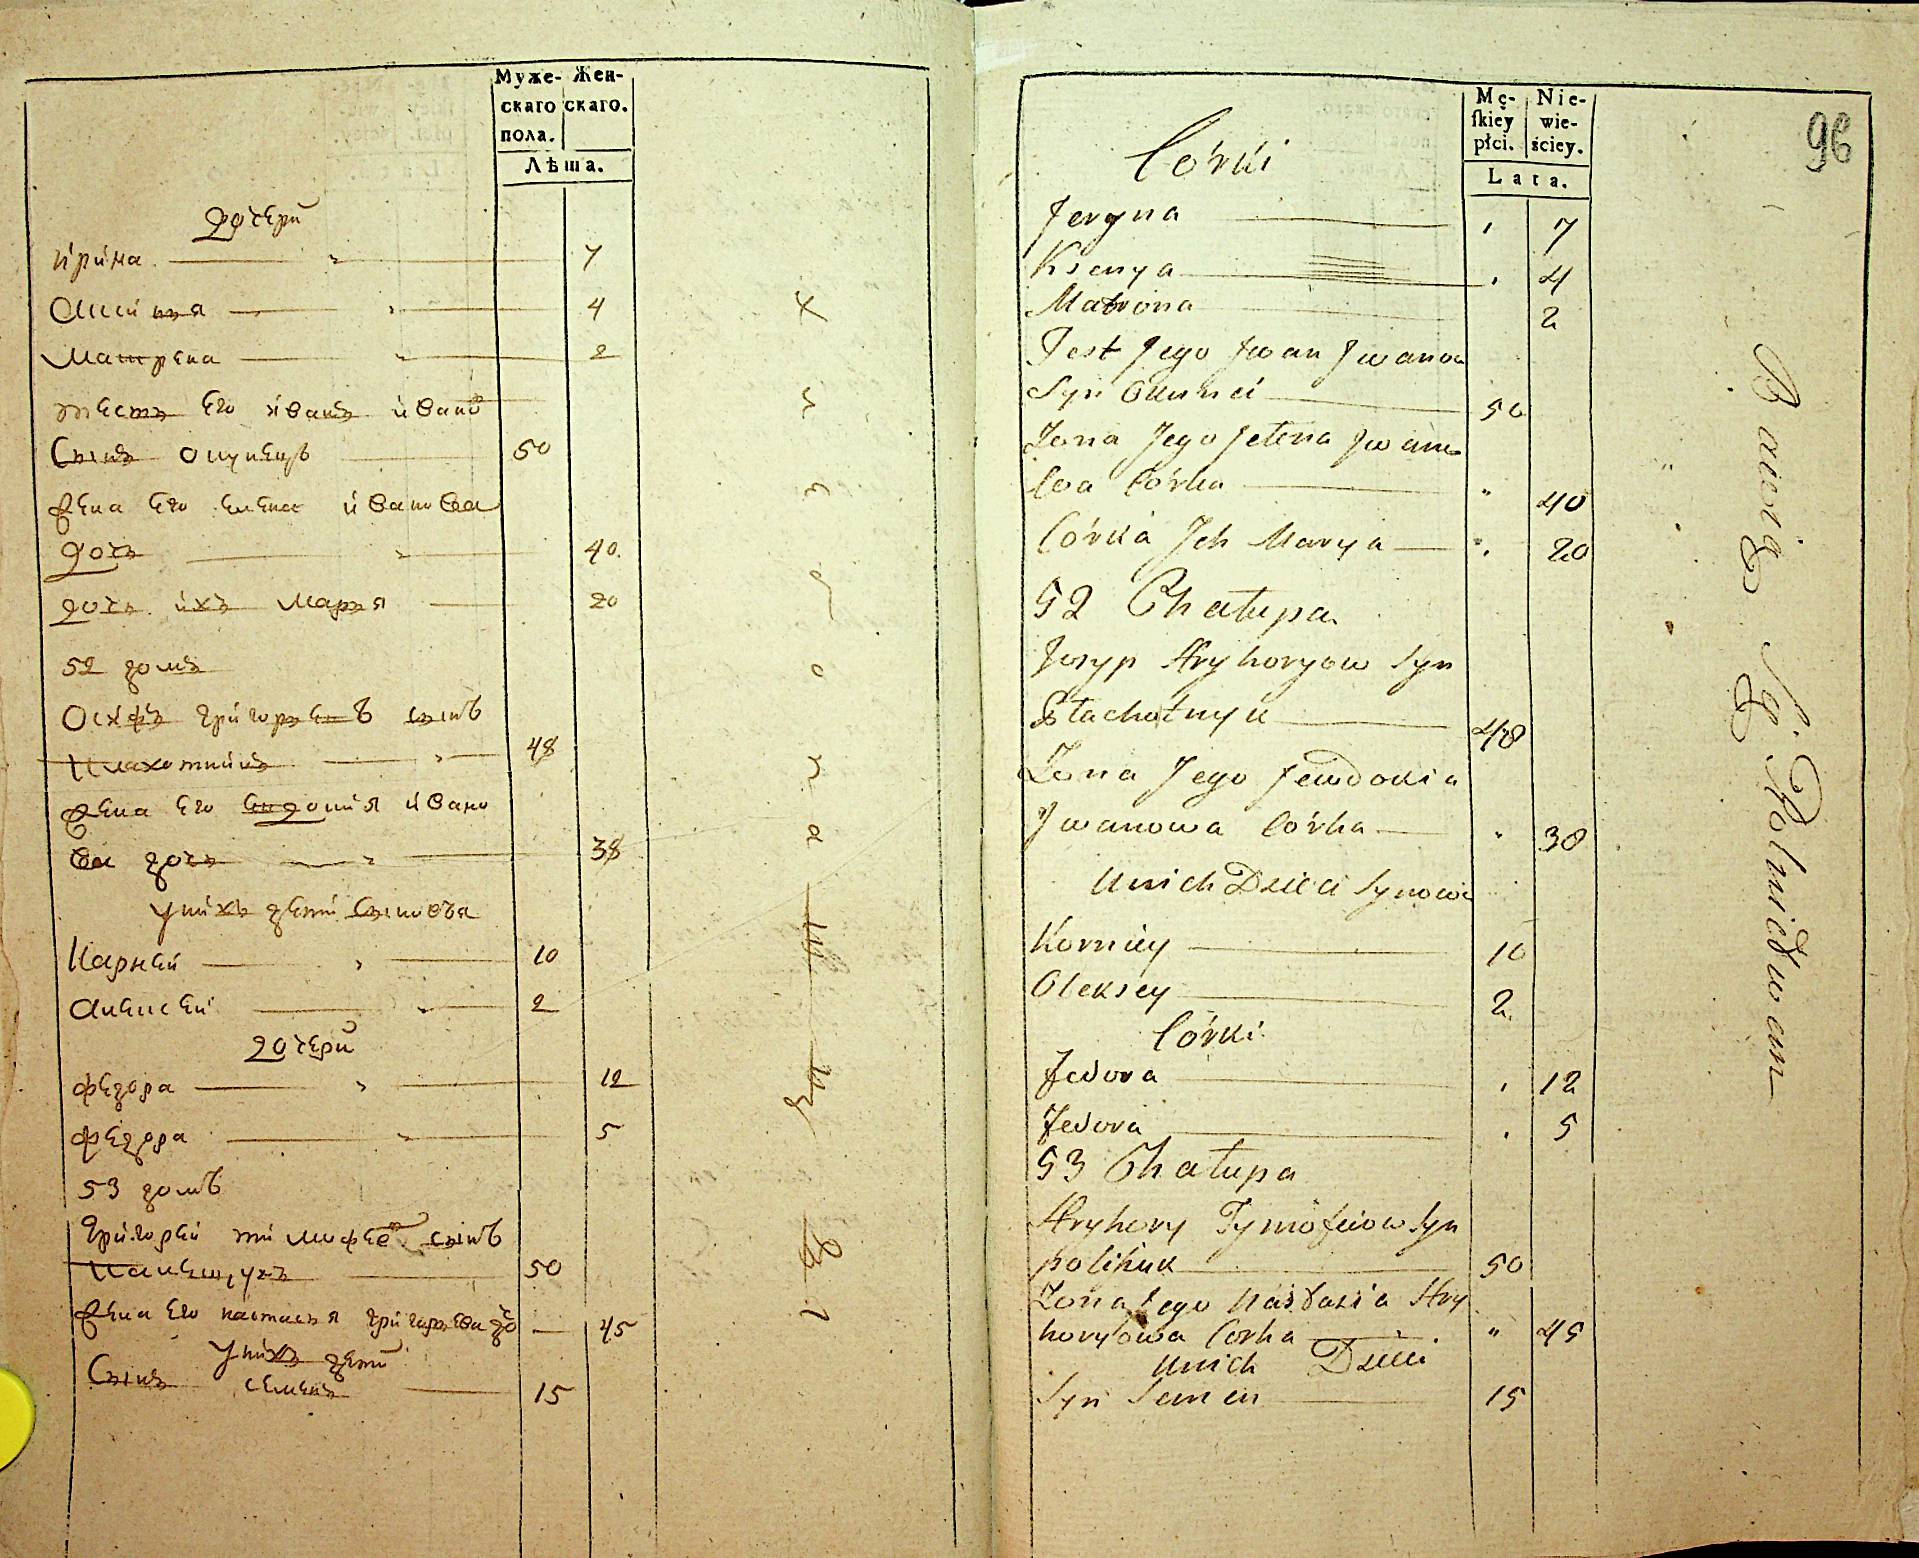 Муже-
скаго
пола.
Жен-
скаго.
Лѣта.
дочери
ирина 7
Аксиния 4
Матрена 2
тесть его иванъ ивано
Сынъ 50
жена его елена иванова
дочь 40
дочь ихъ Марья 20
52 домъ
Осифъ григорьевъ сынъ
Плахотникъ 48
жена его евдокия ивано
ва дочь 38
у нихъ дети Сыновья
Карней 10
Алексей 2
дочери
федора 12
федора 5
53 домъ
григорей тимофее сынъ
50
жена его настасья григорьева до 45
у нихъ дети
Сынъ семенъ 15
96
Mę-
skiey
płci.
Nie-
wie-
ściey.
Lata.
Córki
Jeryna 7
Ksenya 4
Matrona 2
Test Jego Jwan Jwanow
Syn 50
Żona Jego Jelena Jwano
wa Córka 40
Córka Jch Marya 20
52 Chałupa
Josyp Hryhoryow Syn
Płachotnyk 48
Żona Jego Jewdokia
Jwanowa Córka 38
Unich Dzieci Synowie
Korniey 10
Oleksey 2
Córki
Fedora 12
Fedora 5
53 Chałupa
Hryhory Tymofeiow Syn
50
Żona Jego Nastasia Hry
horyowa Corka 45
Unich Dzieci
Syn Semen 15